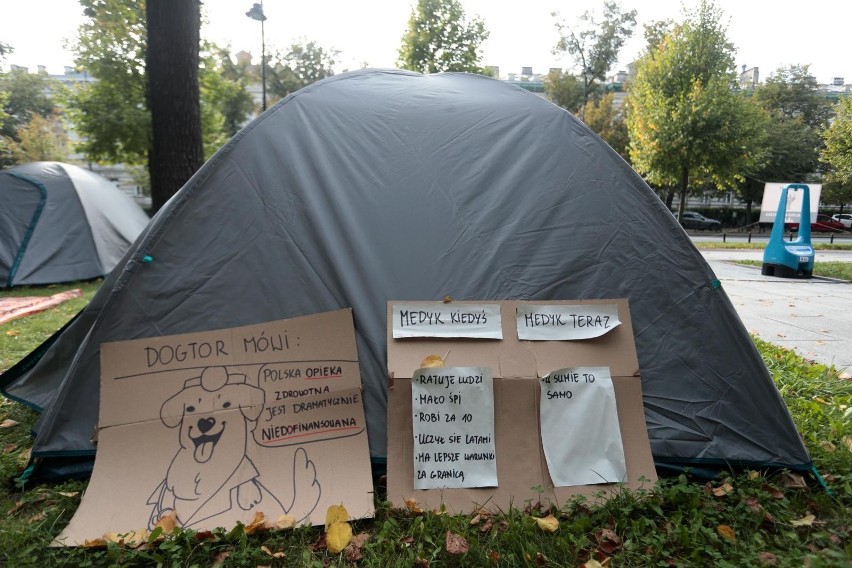 DOGTOR MÓWI:
POLSKA OPIEKA
ZDROWOTNA
JEST DRAMATYCZNIE
NIEDOFINANSOWANA
MEDYK KIEDYŚ
• RATUJE LUDZI
• MAŁO ŚPI
• ROBI ZA 10
• UCZYŁ SIĘ LATAMI
• MA LEPSZE WARUNKI
ZA GRANICĄ
MEDYK TERAZ
• W SUMIE TO
SAMO